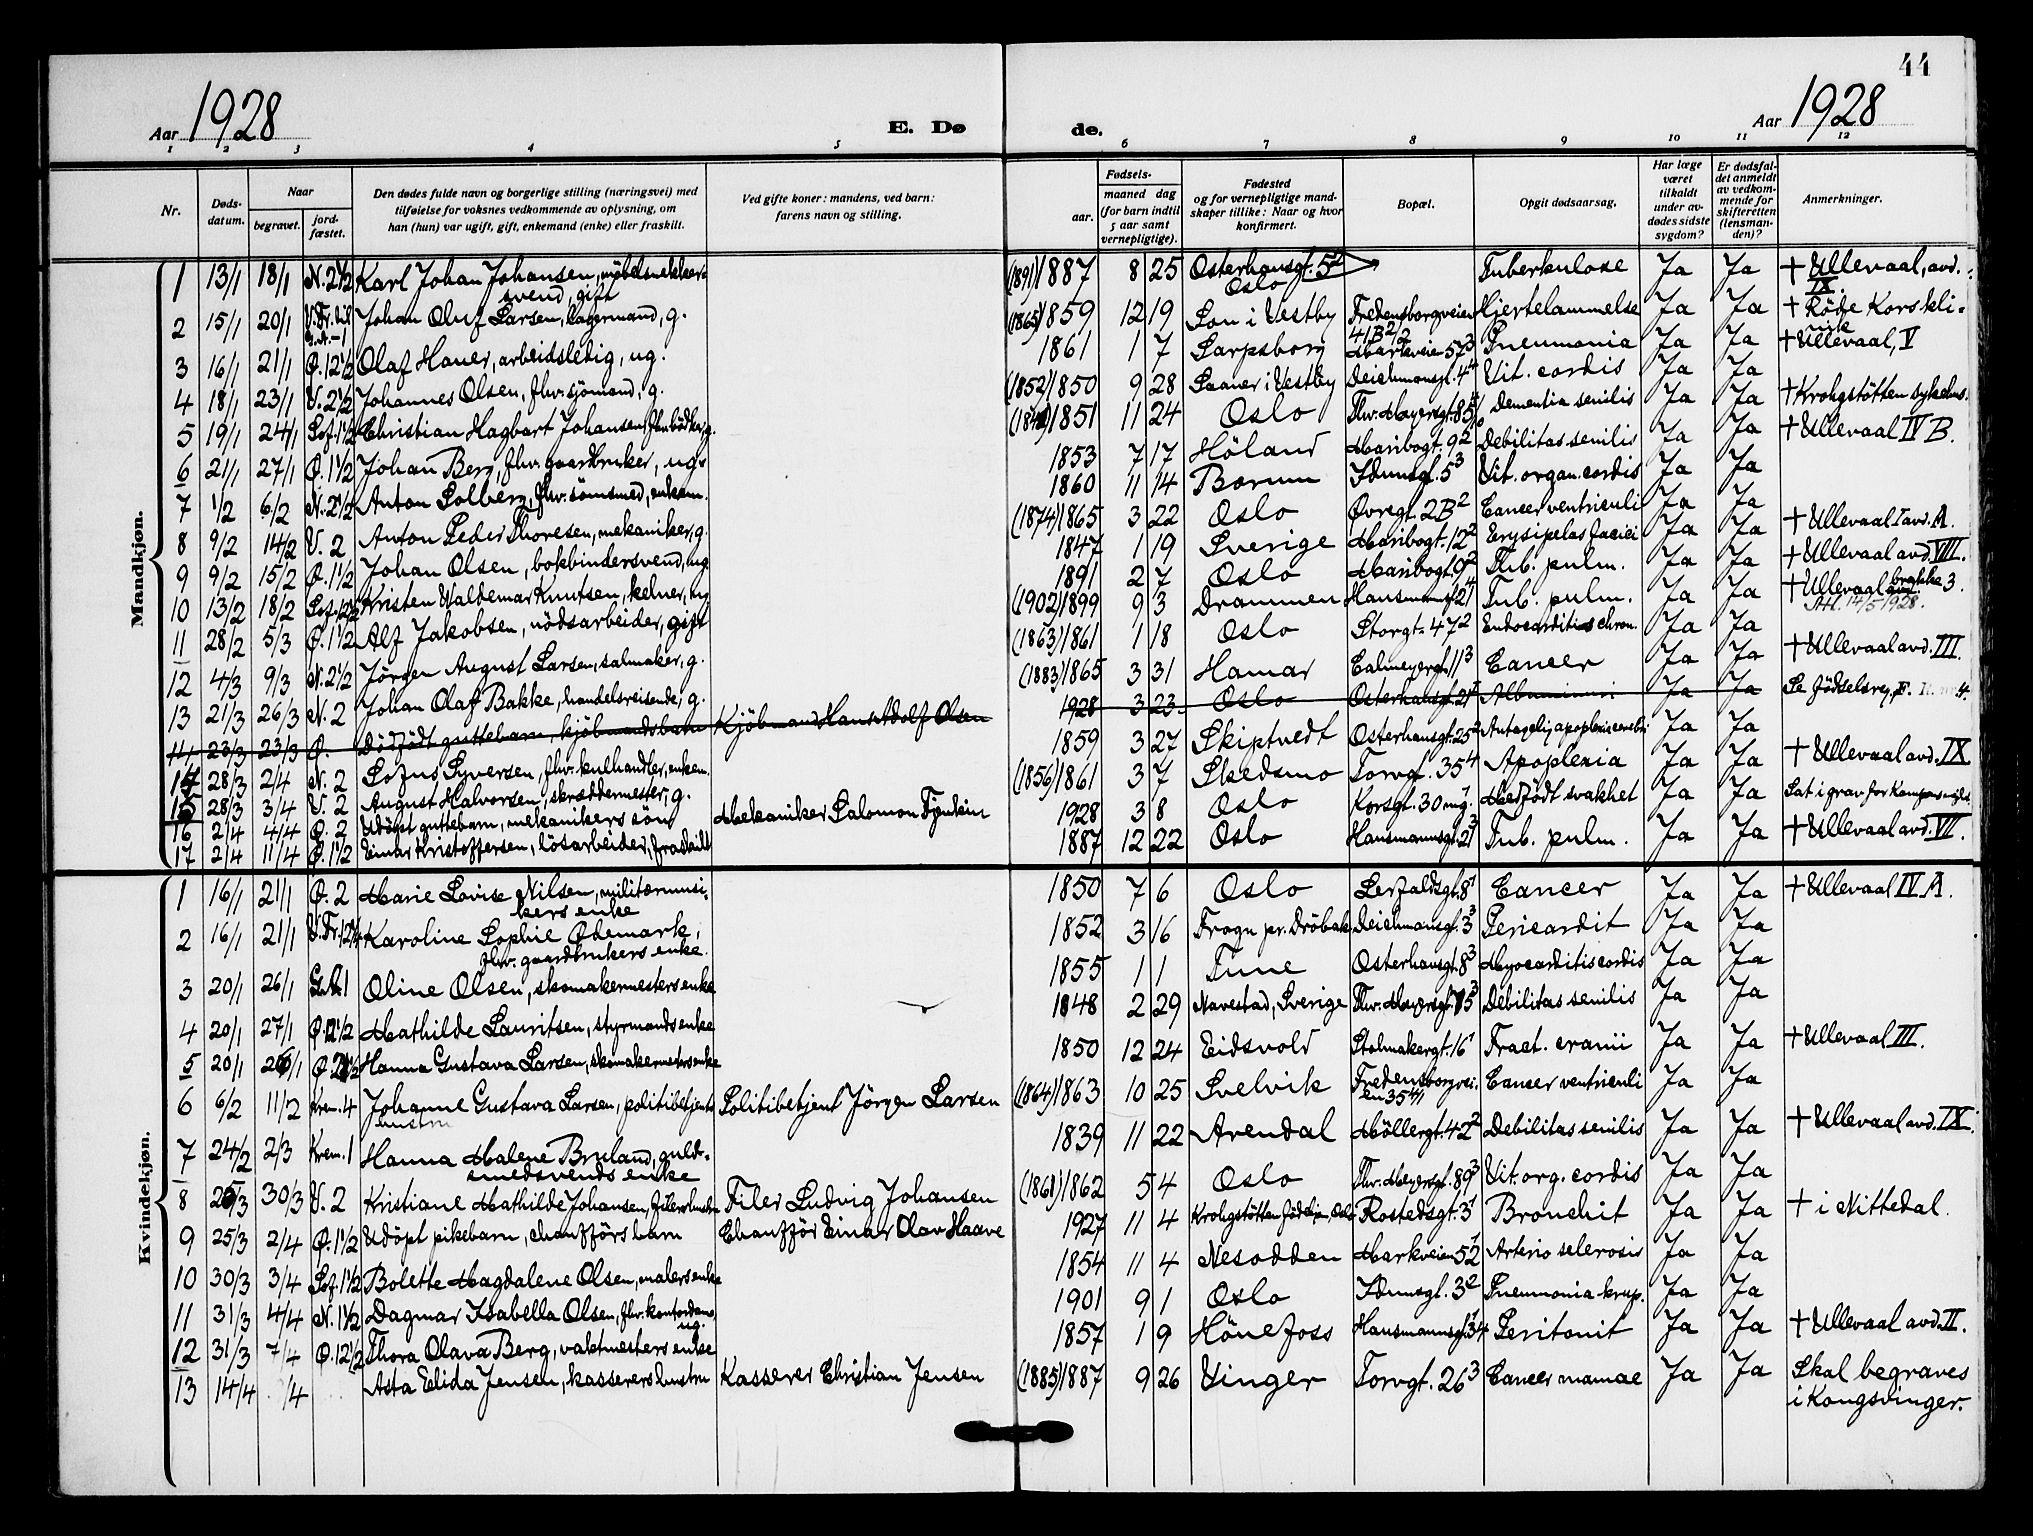 44
Aar 1928
E. Dø
de.
Aar 1928
1 2 3 4 5 6 7 8 9 10 11 12
Nr.
Døds-
datum.
Naar
begravet.
jord-
fæstet.
Den dødes fulde navn og borgerlige stilling (næringsvei) med
tilføielse for voksnes vedkommende av oplysning, om
han (hun) var ugift, gift, enkemand (enke) eller fraskilt.
Ved gifte koner: mandens, ved barn:
farens navn og stilling.
Fødsels-
aar.
maaned dag
(for barn indtil
5 aar samt
vernepligtige).
Fødested
og for vernepligtige mand-
skaper tillike: Naar og hvor
konfirmert.
Bopæl.
Opgit dødsaarsag.
Har læge
været
tilkaldt
under av-
dødes sidste
sygdom?
Er dødsfal-
det anmeldt
av vedkom-
mende for
skifteretten
(lensman-
den)?
Anmerkninger.
Mandkjøn.
1 13/1 18/1 N. 2 1/2 Karl Johan Johansen, möbelsnekker- (1891) 1887 8 25 Osterhausgt. 5 Tuberkulose Ja Ja + Ullevaal, avd.
svend, gift Oslo IX.
2 15/1 20/1 V. Fr. Johan Oluf Larsen, lagermand, g. (1865) 1859 12 19 Son i Vestby Fredensborgveien Hjertelammelse Ja Ja + Röde Kors kli-
41 B 2/2 nik
3 16/1 21/1 Ø. 12 1/2 Olaf Hauer, arbeidsledig, ug. 1861 1 7 Sarpsborg Markveie 57 3 Pneumonia Ja Ja + Ullevaal, V
4 18/1 23/1 V. 2 1/2 Johannes Olsen, fhv. sjömand, g. (1852) 1850 9 28 Saaner i Vestby Deichmansgt. 4 4 Vit. cordis Ja Ja
5 19/1 24/1 Sof. 1 1/2 Christian Hagbart Johansen, fhv. bödker, g. 1851 11 24 Oslo Thv. Meyersgt. 85 Dementia senilis Ja Ja + Krohgstötten sykehus.
6 21/1 27/1 Ø. 1 1/2 Johan Berg, fhv. gaardbruker, ug. 1853 7 17 Höland Maribogt. 9 2 Debilitas senilis Ja Ja + Ullevaal IV B.
7 1/2 6/2 N. 2 1/2 Anton Solberg, fhv. sömsmed, enkem. 1860 11 14 Borum Idunsgt. 5 3 Vit. organ. cordis Ja Ja
8 9/2 14/2 V. 2 Anton Peder Thoresen, mekaniker, g. (1874) 1865 3 22 Oslo Øvregt. 2 B 2 Cancer ventriculi Ja Ja
9 9/2 15/2 Ø. 1 1/2 Johan Olsen, bokbindersvend, ug. 1847 1 19 Sverige Maribogt. 12 2 Erysipelas faciei Ja Ja + Ullevaal I avd. A.
10 13/2 18/2 Sof. 12 1/2 Kristen Valdemar Knutsen, kelner, ug 1891 2 7 Oslo Maribogt. 9 2 Tub. pulm. Ja Ja + Ullevaal avd. VIII.
11 28/2 5/3 Ø. 1 1/2 Alf Jakobsen, nödsarbeider, gift (1902) 1899 9 3 Drammen Hausmannsgt. 21 4 Tub. pulm. Ja Ja + Ullevaal brakke 3.
14/5 1928.
12 4/3 9/3 N. 2 1/2 Jörgen August Larsen, salmaker, g. (1863) 1861 1 18 Oslo Storgt. 47 2 Endocarditis chron. Ja Ja
13 21/3 26/3 N. 2 Johan Olaf Bakke, handelsreisende, g. (1883) 1865 3 31 Hamar Calmeyergt. 11 3 Cancer Ja Ja + Ullevaal avd. III.
14 23/3 23/3 Ø. Dödfödt guttebarn, kjöbmandsbarn Kjöbmand Hans Adolf Olsen 1928 3 23 Oslo Osterhausgt. 21 Ja Ja Se födselsreg.
14 28/3 2/4 N. 2 Sofus Syversen, fhv. kulhandler, enkem. 1859 3 27 Skiptvedt Osterhausgt. 25 2 Antagelig apoplexia cerebri Ja Ja
15 28/3 3/4 V. 2 August Halvorsen, skræddermester, g. (1856) 1861 3 7 Skedsmo Torvgt. 35 4 Apoplexia Ja Ja + Ullevaal avd. IX
16 2/4 4/4 Ø. 2 Udöpt guttebarn, mekanikers sön Mekaniker Salomon 1928 3 8 Oslo Korsgt. 30 Medfödt svakhet Ja Ja Sat i grav for
17 2/4 11/4 Ø. 1 1/2 Einar Kristoffersen, lösarbeider, fraskilt 1887 12 22 Oslo Hausmannsgt. 21 3 Tub. pulm. Ja Ja + Ullevaal avd. VII.
Kvindekjøn.
1 16/1 21/1 Ø. 2 Marie Lovise Nilsen, militærmusi- 1850 7 6 Oslo Leirfaldsgt. 8 1 Cancer Ja Ja + Ullevaal IV A.
kers enke
2 16/1 21/1 V. Fr. 12 1/4 Karoline Sophie Ødemark, 1852 3 16 Frogn pr. Dröbak Deichmansgt. 3 3 Pericardit Ja Ja
fhv. gaardbrukers enke.
3 20/1 26/1 G. A. 1 Oline Olsen, skomakermesters enke 1855 1 1 Tune Osterhausgt. 8 3 Myocarditis cordis Ja Ja
4 20/1 27/1 Ø. 12 1/2 Mathilde Lauritsen, styrmands enke 1848 2 29 Navestad, Sverige Thv. Meyersgt. 75 3 Debilitas senilis Ja Ja
5 20/1 26/1 Ø. 2 1/2 Hanna Gustava Larsen, skomakermesters enke 1850 12 24 Eidsvold Stolmakergt. 16 1 Fract. cranii Ja Ja + Ullevaal III.
6 6/2 11/2 Krem. 4 Johanne Gustava Larsen, politibetjents Politibetjent Jörgen Larsen (1864) 1863 10 25 Svelvik Fredensborgvei- Cancer ventriculi Ja Ja
hustru en 35 4/1
7 24/2 2/3 Krem. 1 Hanna Malene Bruland, guld- 1839 11 22 Arendal Möllergt. 42 2 Debilitas senilis Ja Ja + Ullevaal avd. IX.
smedsvends enke
8 25/3 30/3 V. 2 Kristiane Mathilde Johansen, filers hustru Filer Ludvig Johansen (1861) 1862 5 4 Oslo Thv. Meyersgt. 89 3 Vit. org. cordis Ja Ja
9 25/3 2/4 Ø. 1 1/2 Udöpt pikebarn, chaufförs barn Chafför Einar Olav Haave 1927 11 4 Krohgstötten födehjem, Oslo Rostedsgt. 3 1 Bronchit Ja Ja + i Nittedal.
10 30/3 3/4 Sof. 1 1/2 Bolette Magdalene Olsen, malers enke 1854 11 4 Nesodden Markveien 52 1 Arterio sclerosis Ja Ja
11 31/3 4/4 N. 1 1/2 Dagmar Isabella Olsen, fhv. kontordame, 1901 9 1 Oslo Idunsgt. 3 2 Pneumonia krup. Ja Ja
ug.
12 31/3 7/4 Ø. 12 1/2 Thora Olava Berg, vaktmesters enke 1857 1 9 Hönefoss Hausmannsgt. 34 Peritonit Ja Ja + Ullevaal avd. II.
13 14/4 /4 Asta Elida Jensen, kasserers hustru Kasserer Christian Jensen (1885) 1887 9 26 Vinger Torvgt. 26 3 Cancer mamae Ja Ja Skal begraves
i Kongsvinger.